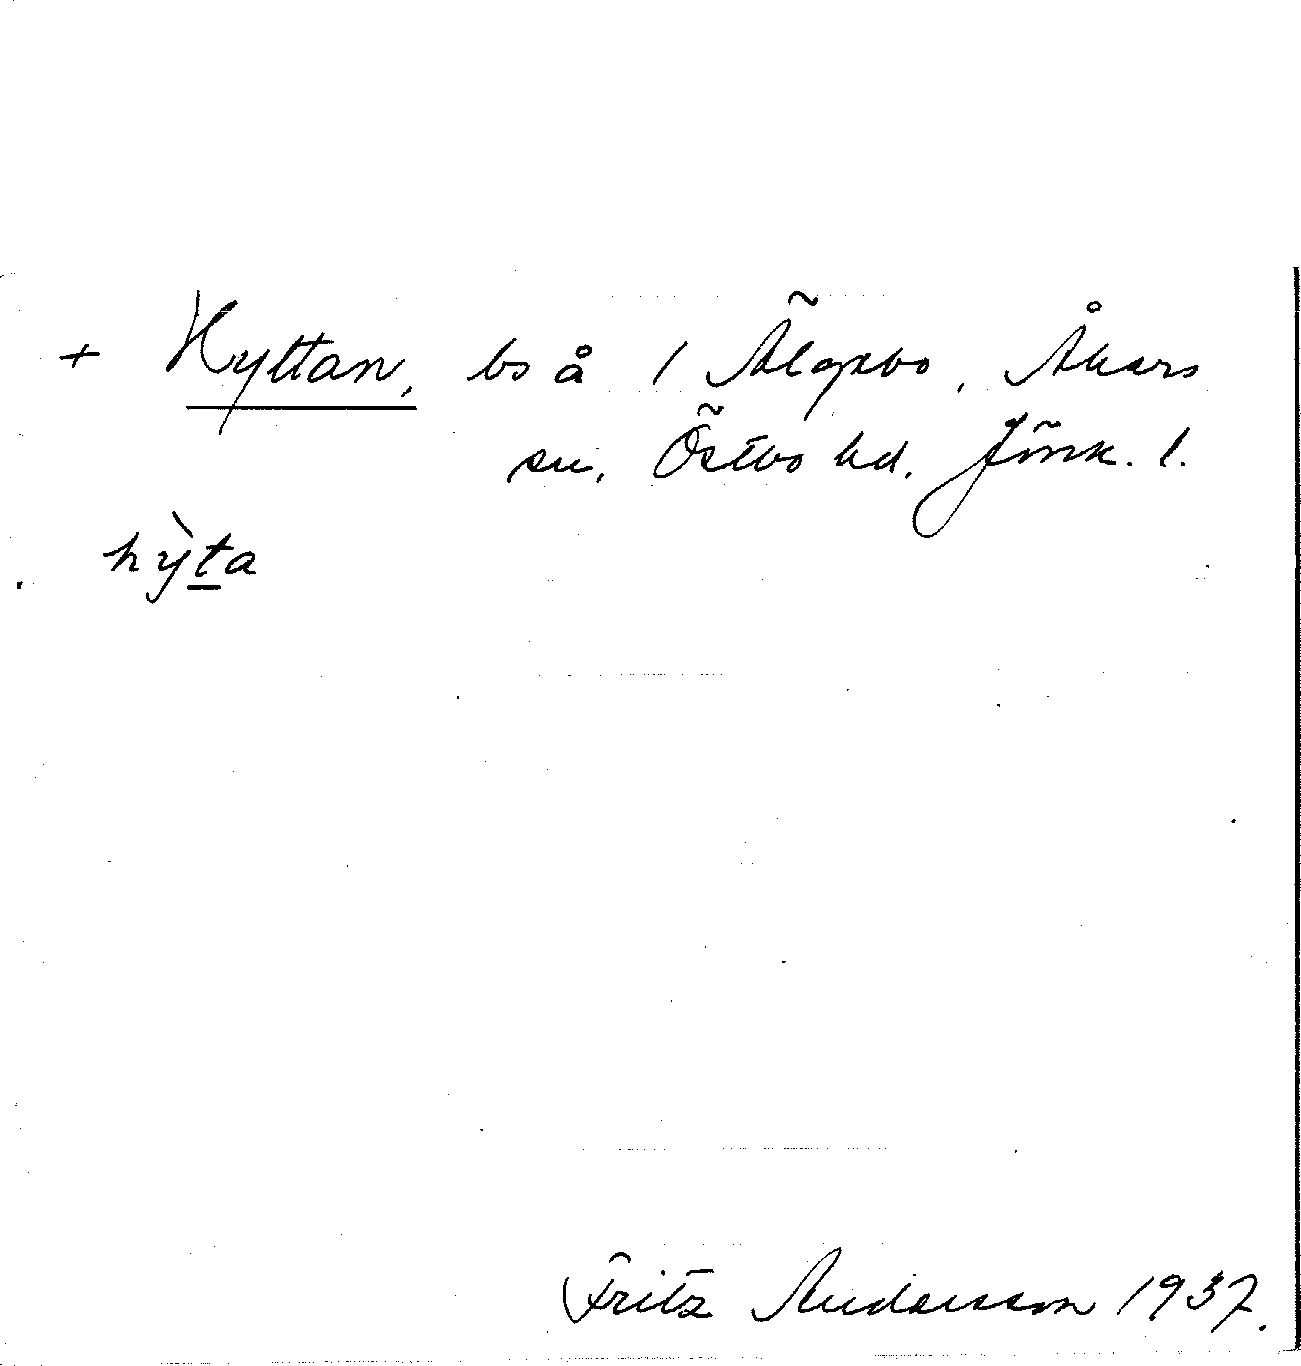 + Hyttan, bs å 1 Älgabo, Åkers
sn, Östbo hd. Jönk. l.
hỳta
Fritz Andersson 1937.